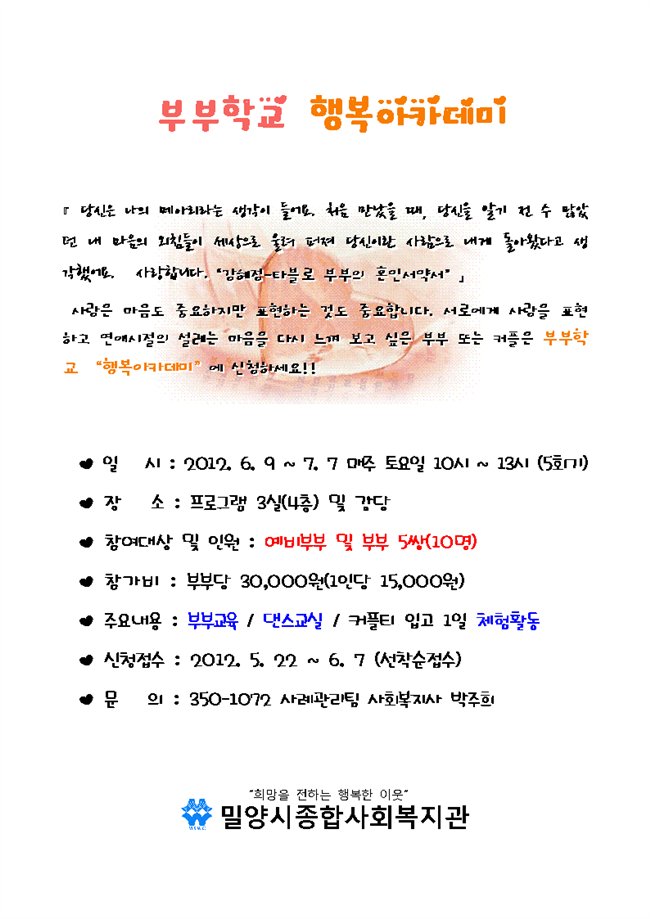 부부학교 행복아카데미
『 당신은 나의 메아리라는 생각이 들어요. 처음 만났을 때, 당신을 알기 전 수 많았
던 내 마음의 외침들이 세상으로 울려 퍼져 당신이란 사람으로 내게 돌아왔다고 생
각했어요. 사랑합니다. "강혜정-타블로 부부의 혼인서약서" 」
사랑은 마음도 중요하지만 표현하는 것도 중요합니다. 서로에게 사랑을 표현
하고 연애시절의 설레는 마음을 다시 느껴 보고 싶은 부부 또는 커플은 부부학
교 "행복아카데미" 에 신청하세요!!
일 시 : 2012. 6. 9 ~ 7. 7 매주 토요일 10시 ~ 13시 (5회기)
장 소 : 프로그램 3실(4층) 및 강당
참여대상 및 인원 : 예비부부 및 부부 5쌍(10명)
참가비 : 부부당 30,000원(1인당 15,000원)
주요내용 : 부부교육 / 댄스교실 / 커플티 입고 1일 체험활동
신청접수 : 2012. 5. 22 ~ 6. 7 (선착순접수)
문 의 : 350-1072 사례관리팀 사회복지사 박주희
"희망을 전하는 행복한 이웃"
밀양시종합사회복지관